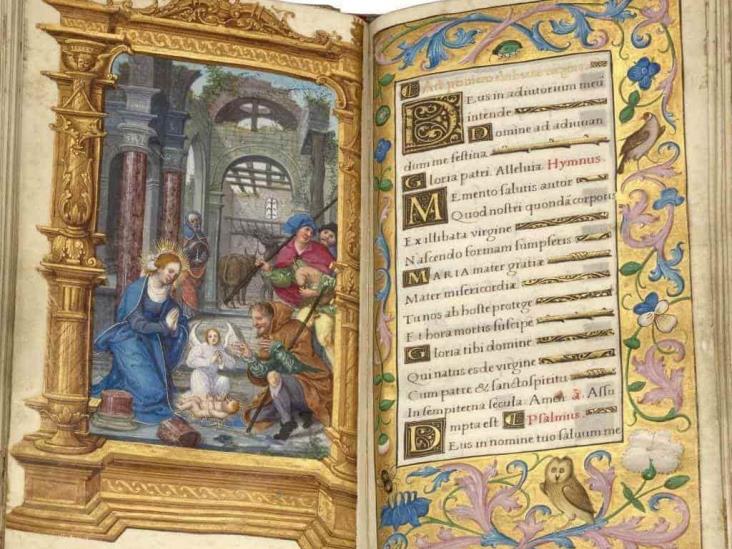 DEus in adiutorium meū
intende
Domine ad adiuuan
dum me festina
Gloria patri. Alleluia. Hymnus.
Memento salutis autor
Quod nostri quondā corporis
Ex illibata virgine
Nascendo formam sumpseris
MARIA mater gratiæ
Mater misericordiæ
Tu nos ab hoste protege
Et hora mortis suscipe
Gloria tibi domine
Qui natus es de virgine
Cum patre & sancto spiritu
In sempiterna secula. Amen. ā. Assu
mpta est Psalmus.
DEus in nomine tuo saluum me